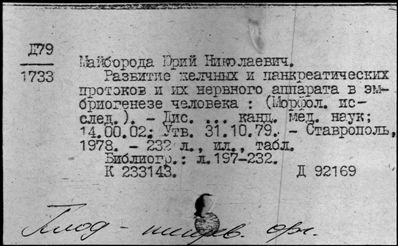 Д79
1733
Майборода Юрий Николаевич.
Развитие желчных и панкреатических
протоков и их нервного аппарата в эм-
бриогенезе человека : (Морфол. ис-
след.). - Дис. ... канд. мед. наук;
14.00.02; Утв. 31.10.79. - Ставрополь,
1978. - 232 л., ил., табл.
Библиогр.: л.197-232.
К 233143. Д 92169
Плод - пищев. орг.